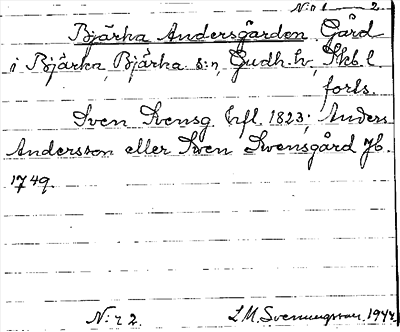 N:o 1 — 2.
Bjärka Andersgården Gård
i Bjärka, Bjärka s:n, Gudh. h., Skb. l.
forts.
Sven Svensg. Hfl. 1823; Anders
Andersson eller Swen Swensgård Jb.
1749.
N:r 2. L.M. Svenungsson. 1944.